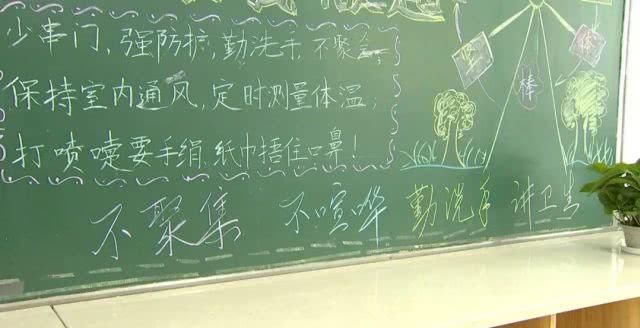 少串门，强防护，勤洗手，不聚会，
保持室内通风，定时测量体温，
打喷嚏要手绢 纸巾捂住口鼻！
棒
不聚集 不喧哗 勤洗手 讲卫生